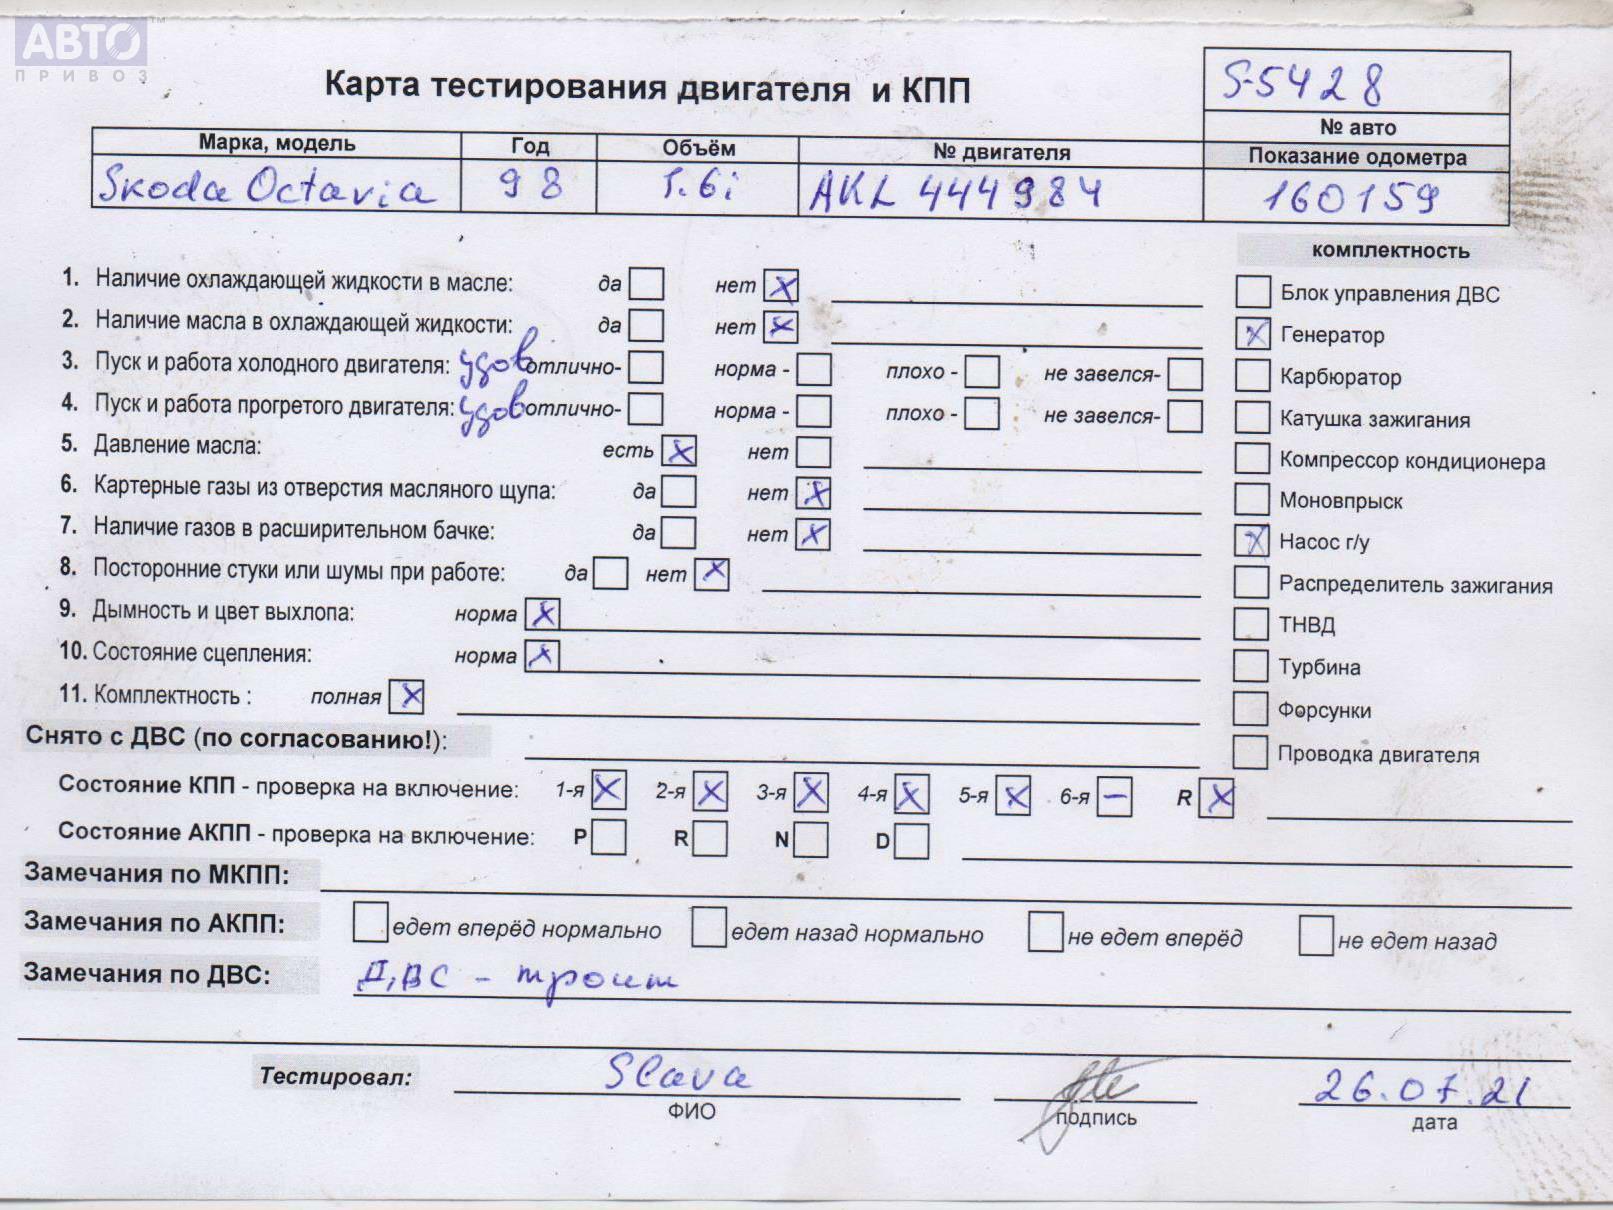 АВТО™
ПРИВОЗ
Карта тестирования двигателя и КПП
S-5428
№ авто
Марка, модель Год Объём № двигателя Показание одометра
Skoda Octavia 98 1.6i AKL 444984 160159
комплектность
1. Наличие охлаждающей жидкости в масле: да нет x
Блок управления ДВС
2. Наличие масла в охлаждающей жидкости: да нет x
x Генератор
3. Пуск и работа холодного двигателя: удов отлично- норма - плохо - не завелся-
Карбюратор
4. Пуск и работа прогретого двигателя: удов отлично- норма - плохо - не завелся-
Катушка зажигания
5. Давление масла: есть x нет
Компрессор кондиционера
6. Картерные газы из отверстия масляного щупа: да нет x
Моновпрыск
7. Наличие газов в расширительном бачке: да нет x
x Насос г/у
8. Посторонние стуки или шумы при работе: да нет x
Распределитель зажигания
9. Дымность и цвет выхлопа: норма x
ТНВД
10. Состояние сцепления: норма x
Турбина
11. Комплектность : полная x
Форсунки
Снято с ДВС (по согласованию!):
Проводка двигателя
Состояние КПП - проверка на включение: 1-я x 2-я x 3-я x 4-я x 5-я x 6-я – R x
Состояние АКПП - проверка на включение: P R N D
Замечания по МКПП:
Замечания по АКПП: едет вперёд нормально едет назад нормально не едет вперёд не едет назад
Замечания по ДВС: ДВС - троит
Тестировал: Slava 26.07.21
ФИО подпись дата